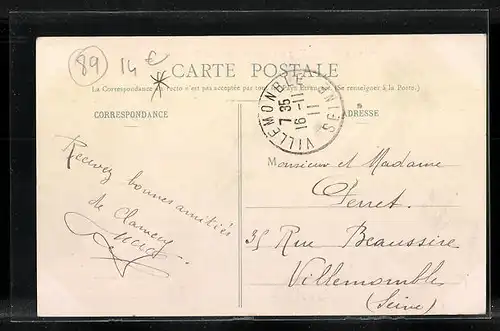 89 14 €
CARTE POSTALE
La Correspondance au recto n'est pas acceptée par tous les pays Etrangers. (Se renseigner à la Poste.)
CORRESPONDANCE
ADRESSE
VILLEMOMBLE SEINE
7 35
16 - 11
11
Recevez bonnes amitiés
de Clamecy
Monsieur et Madame
Perret
35 Rue Beaussire
Villemomble
(Seine)